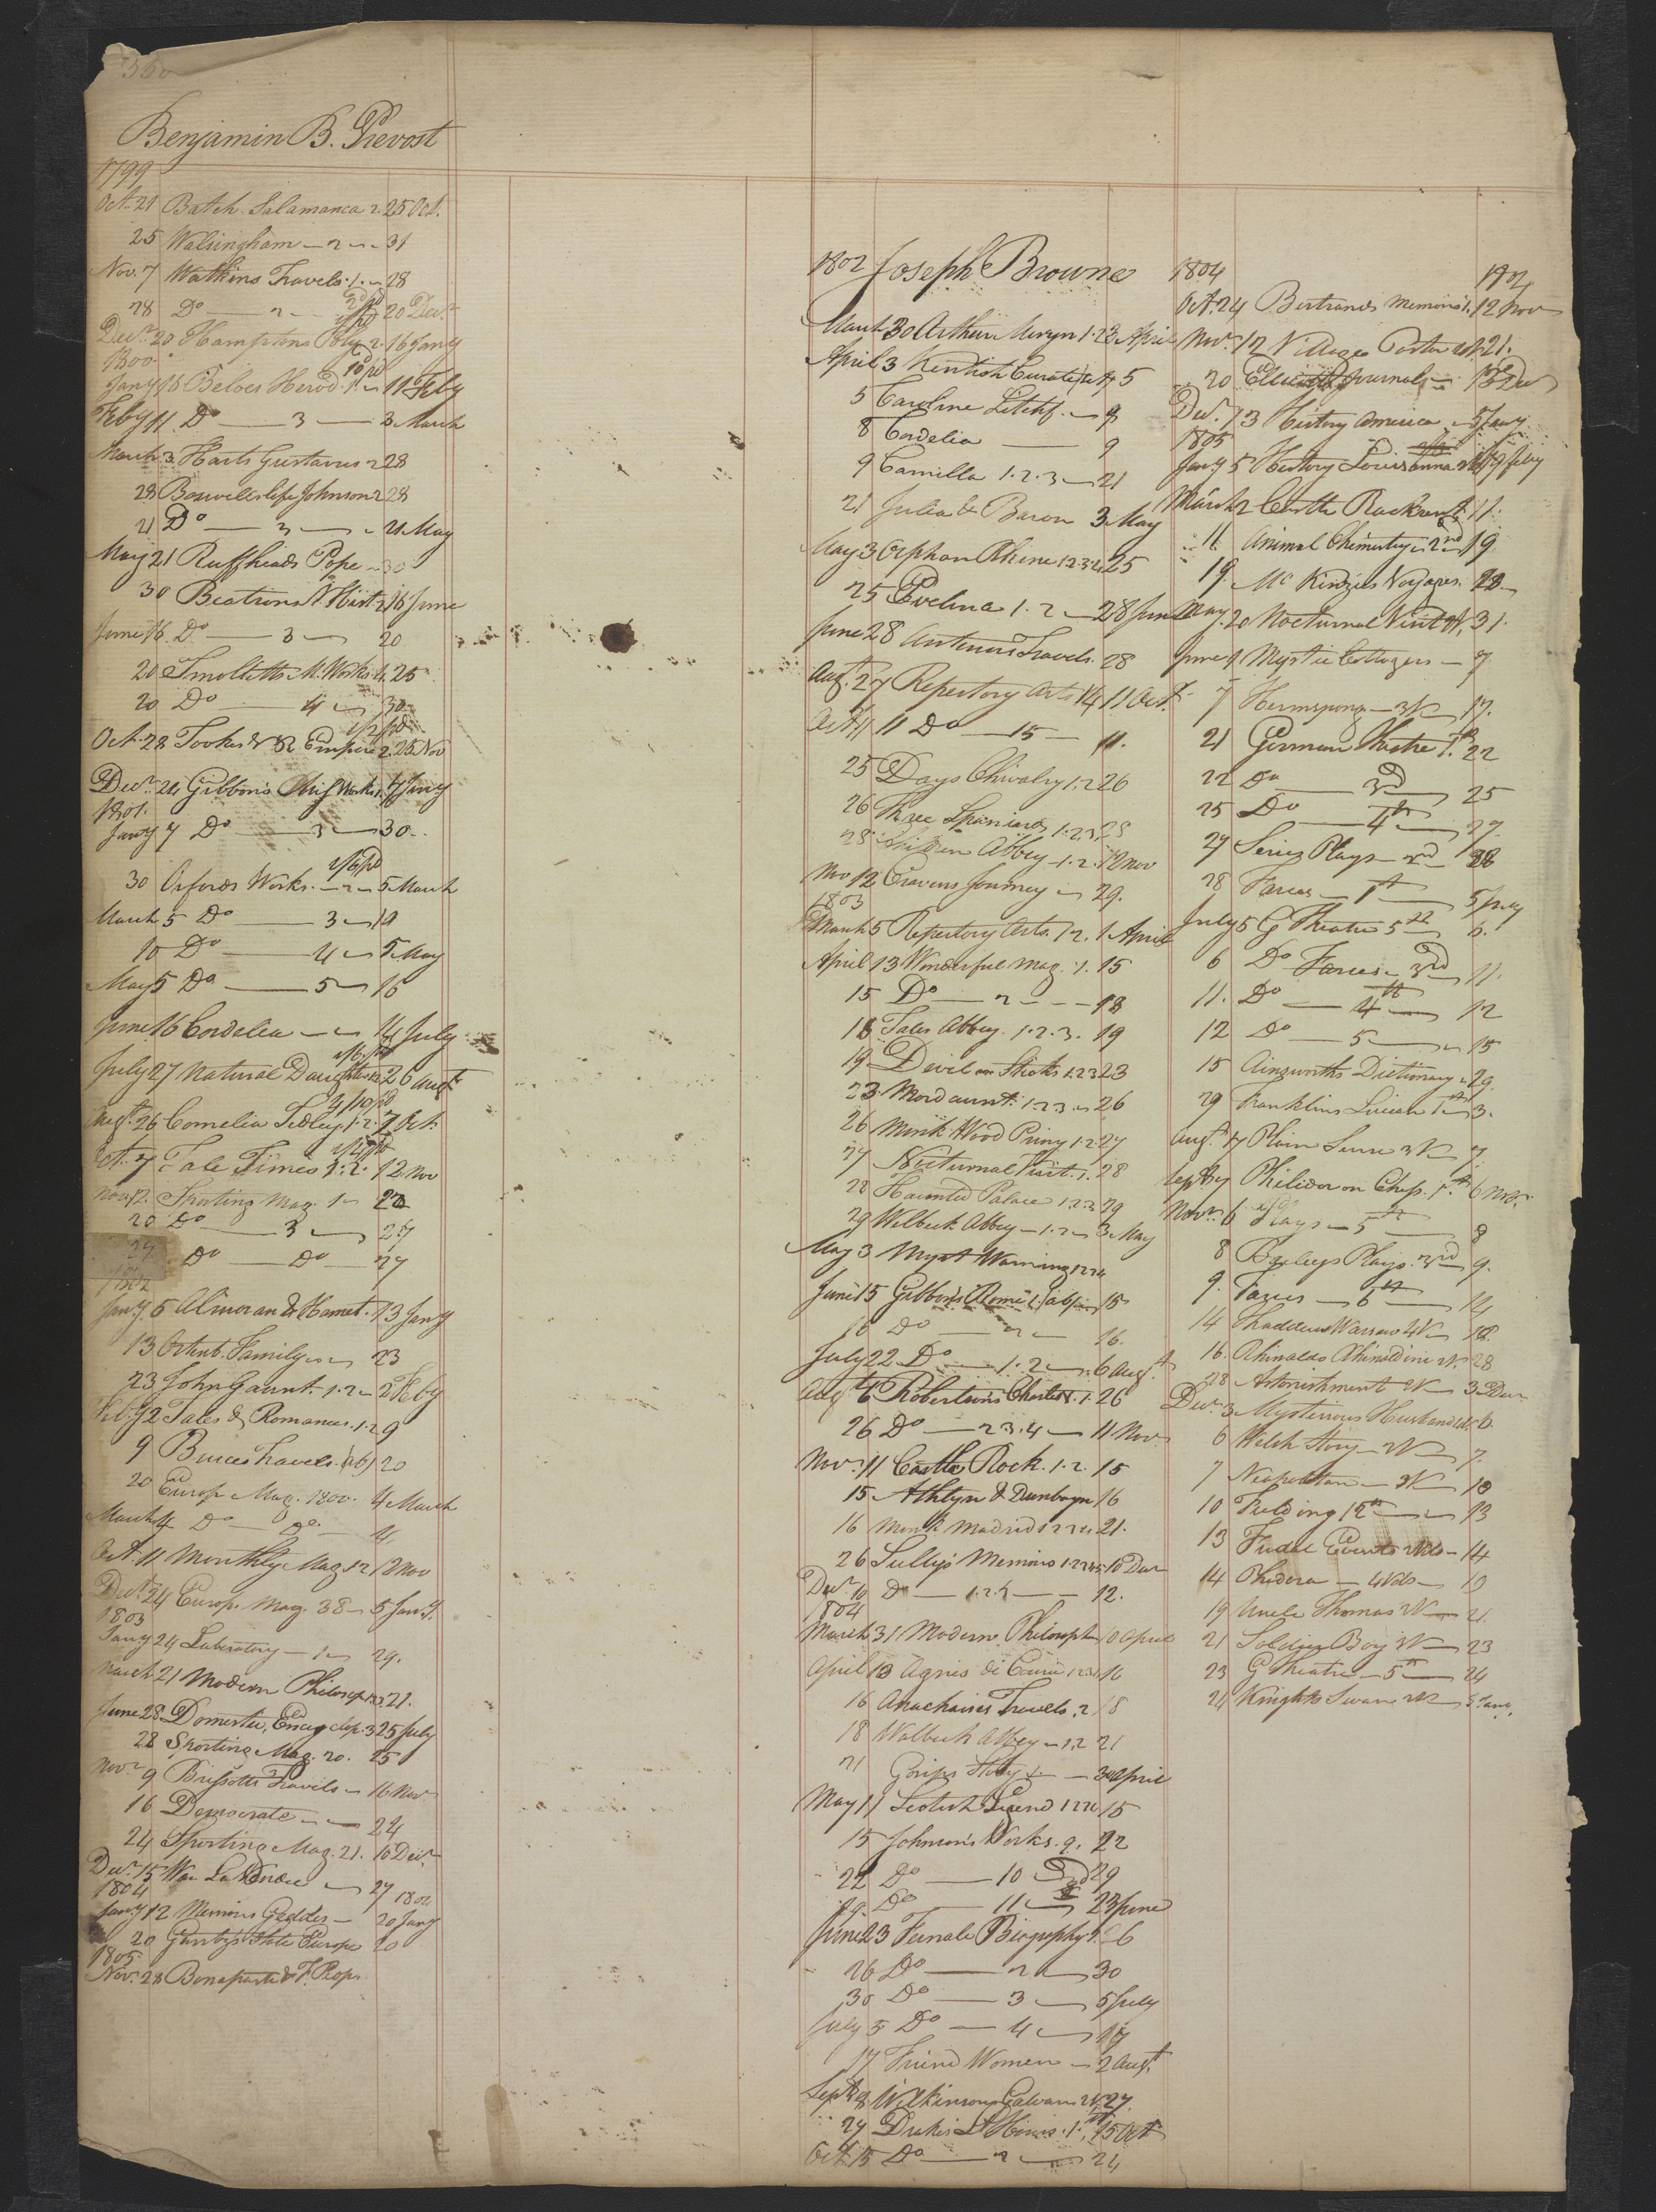 Benjamin B. Prevost
1799
Oct. 21 Batch. Salamanca 2. 25 Oct.
25 Walsingham — 2 — 31
Nov. 7 Watkins Travels. 1. — 28
28 Do — 2 — 20 Decr
Decr 20 Hamptons Poly. 2. 16 Jany
1800.
Jany 16 Beloes Herod. 1. — 11 Feby
Feby 11 Do — 3 — 3 March
March 3 Harts Gustavus 2 28
28 Boswells life Johnson 2 28
21 Do — 3 — 21 May
May 21 Ruffheads Pope — 30
30 Beatsons N. Hist. 2 16 June
June 16 Do — 3 — 20
20 Smolletts M. Works 4. 25
20 Do — 4 — 30
Oct. 28 Tookes R Empire 2. 25 Nov
Decr 24 Gibbons Mis Works 1. 7 Jany
1801.
Jany 7 Do — 3 — 30
30 Orfords Works. — 2 — 5 March
March 5 Do — 3 — 10
10 Do — 4 — 5 May
May 5 Do — 5 — 16
June 16 Cordelia — 14 July
July 27 Natural Daughter 1.2. 26 Augt
Augt 26 Cornelia Sedley. 1.2. 7 Oct.
Oct. 7 Tale Times 1.2. 12 Nov
Nov. 12. Sporting Mag. 1 — 20
20 Do — 3 — 27
27 Do — Do — 27
1802
Jany. 5 Almoran & Hamet. 13 Jany
13 Ortenb. Family — 23
23 John Gaunt. 1.2 — 2 Feby
Feby 2 Tales & Romances. 1. 2 9
9 Bruces Travels. 20
20 Europ. Mag. 1800. 4 March
March 4 Do — Do — 4
Oct. 11 Monthly Mag 12 12 Nov
Decr 24 Europ. Mag. 38 — 5 Jany.
1803
Jany 24 Laboratory — 1 — 29.
March 21 Modern Philosop. 1.2.3 21.
June 28 Domestic Encyclop. 3 25 July
28 Sporting Mag. 20. 25
Novr 9 Brissotts Travels — 16 Nov.
16 Democrate — 24
24 Sporting Mag. 21. 10 Decr
Decr. 15 War La Vendee — 27
1804
Jany 12 Memoirs Geddes — 20 Jany
20 State Europe 20
1805
Nov. 28 Bonaparte & F. Peop.
1802 Joseph Browne
March 30 Arthur Mervyn 1.2 3 April
April 3 Kentish Curate 5
5 Caroline Litchf. — 8
8 Cordelia — 9
9 Camilla 1.2.3 — 21
21 Julia de Baron 3 May
May 3 Orphan Rhine 1.2.3.4. 25
25 Evelina 1.2 — 28 June
June 28 Antenors Travels. 28
Augt. 27 Repertory Arts 14 11 Oct.
Oct. 11 Do — 15 — 11.
25 Days Chivalry 1.2 26
26 Three Spaniards 1.2.3 28
28 Children Abbey — 1.2. 12 Nov
Nov 12 Cravens Journey — 29.
1803
March 5 Repertory Arts. 1.2. 1 April
April 13 Wonderful Mag. 1. 15
15 Do — 2 — 18
18 Tales Abbey. 1.2.3. 19
19 Devil on Sticks 1.2.3 23
23 Mordaunt. 1.2.3. — 26
26 Monk Wood Priory 1.2 27
27 Nocturnal Visit. 1. 28
28 Haunted Palace 1.2.3 29
29 Welbeck Abbey — 1.2 — 3 May
May 3 Myst Warning 1.2.3.4
June 15 Gibbons Rome 1. 15
16 Do — 2 — 16.
July 22 Do — 1.2 — 6 Augt
Augt 6 Robertsons Charles V. 1. 26
26 Do — 2.3.4 — 11 Nov
Nov. 11 Castle Rock. 1.2. 15
15 Athlyn & Dunbayn 16
16 Monk Madrid 1.2.3.4 21.
26 Sullys Memoirs 1.2.3.4.5. 10 Decr
Decr. 10 Do — 1.2.5 — 12.
1804
March 31 Modern Philosoph. 10 April
April 13 Agnes de Curci 1.2.3.4 16
16 Anacharsis Travels. 2 18
18 Walbeck Abbey — 1.2 21
21 Gossips Story 1 — 30 April
May 11 Scotish Legend 1.2.3.4 15
15 Johnson's Works. 9. 22
22 Do — 10 — 29
29. Do — 11 — 23 June
June 23 Female Biography 1. 26
26 Do — 2 — 30
30 Do — 3 — 5 July
July 5 Do — 4 — 17
17 Friend Women — 2 Augt
Sept 8 Wilkinsons Galvanis 27.
27 Drakes L Hours. 1. 15 Oct
Oct. 15 Do — 2 — 24
1804
Oct. 24 Bertrands Memoirs 1. 12 Nov
Nov. 12 Village Pastor 21.
20 Ellicotts Journal — 13 Decr
Decr. 13 History America — 5 Jany
1805
Jany 5 History Louisianna 19 Feby
March 2 Castle Rackrent. 11.
11 Animal Chimistry — 2nd 19
19. Mc Kinzies Voyages. 22
May 20 Nocturnal Visit 31.
June 1 Mystic Cottagers — 7
7 Hermsprong — 3 V — 17.
21 German Theatre 1. 22
22 Do — 3d — 25
25 Do — 4th — 27.
27 Series Plays — 2nd — 28
28 Farces — 1st — 5 July
July 5 G Theatre 5th — 6.
6 Do Farces — 3rd — 11.
11. Do — 4th — 12
12 Do — 5 — 15
15 Ainsworths Dictionary. 29.
29 Franklins Lucian 1st — 3.
Augt. 17 Plain Sense 3 V — 7
Sept 7 Philidor on Chess. 6 Nov.
Novr. 6 Plays — 5th — 8
8 Plays. 3rd — 9.
9. Farces — 6th — 14
14 Thaddeus Warsaw 4 V — 16
16. Rhinaldo Rhinaldini 2 V. 28
28 Astonishment 2 V — 3 Decr
Decr. 3 Mysterious Husband 6
6 Welsh Story — 3 V — 7.
7 Neapolitan — 3 V — 10
10 Fielding 12th — 13
13 Feudal Events 2 Vols — 14
14 Phedora — 4 Vols — 19
19 Uncle Thomas 2 V — 21
21 Soldier Boy 3 V — 23
23 G Theatre — 5th — 24
24 Knights Swan 2 V — 5 Jany.